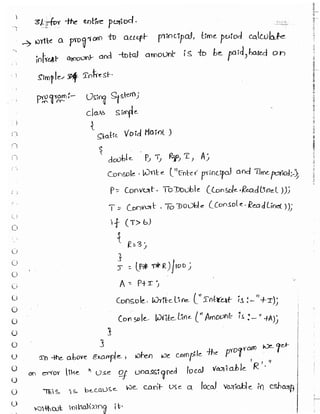 3% for the entire period.
→ write a program to accept principal, time period calculate
intrest amount and total amount is to be paid, based on
Simple Intrest.
program:- Using System;
class simple
{
Static Void Main( )
{
double P, T, R, I, A;
Console.Write ("Enter principal and Time period:-");
P= Convert.ToDouble (Console.ReadLine( ));
T = Convert.ToDouble (Console.ReadLine( ));
if (T>6)
{
R=3;
}
I = (P* T*R)/100;
A = P+I;
Console.WriteLine ("Intrest is:-"+I);
Console.WriteLine ("Amount is:-"+A);
}
}
In the above Example, when we compile the program we get
an error like "Use of unassigned local variable R".
This is because we can't use a local variable in csharp
without initializing it.